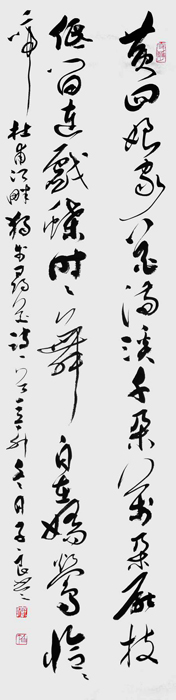 黄四娘家花满溪千朵万朵压枝
低留连戏蝶时时舞自在娇莺恰恰
啼杜甫江畔独步寻花诗一首辛卯冬月